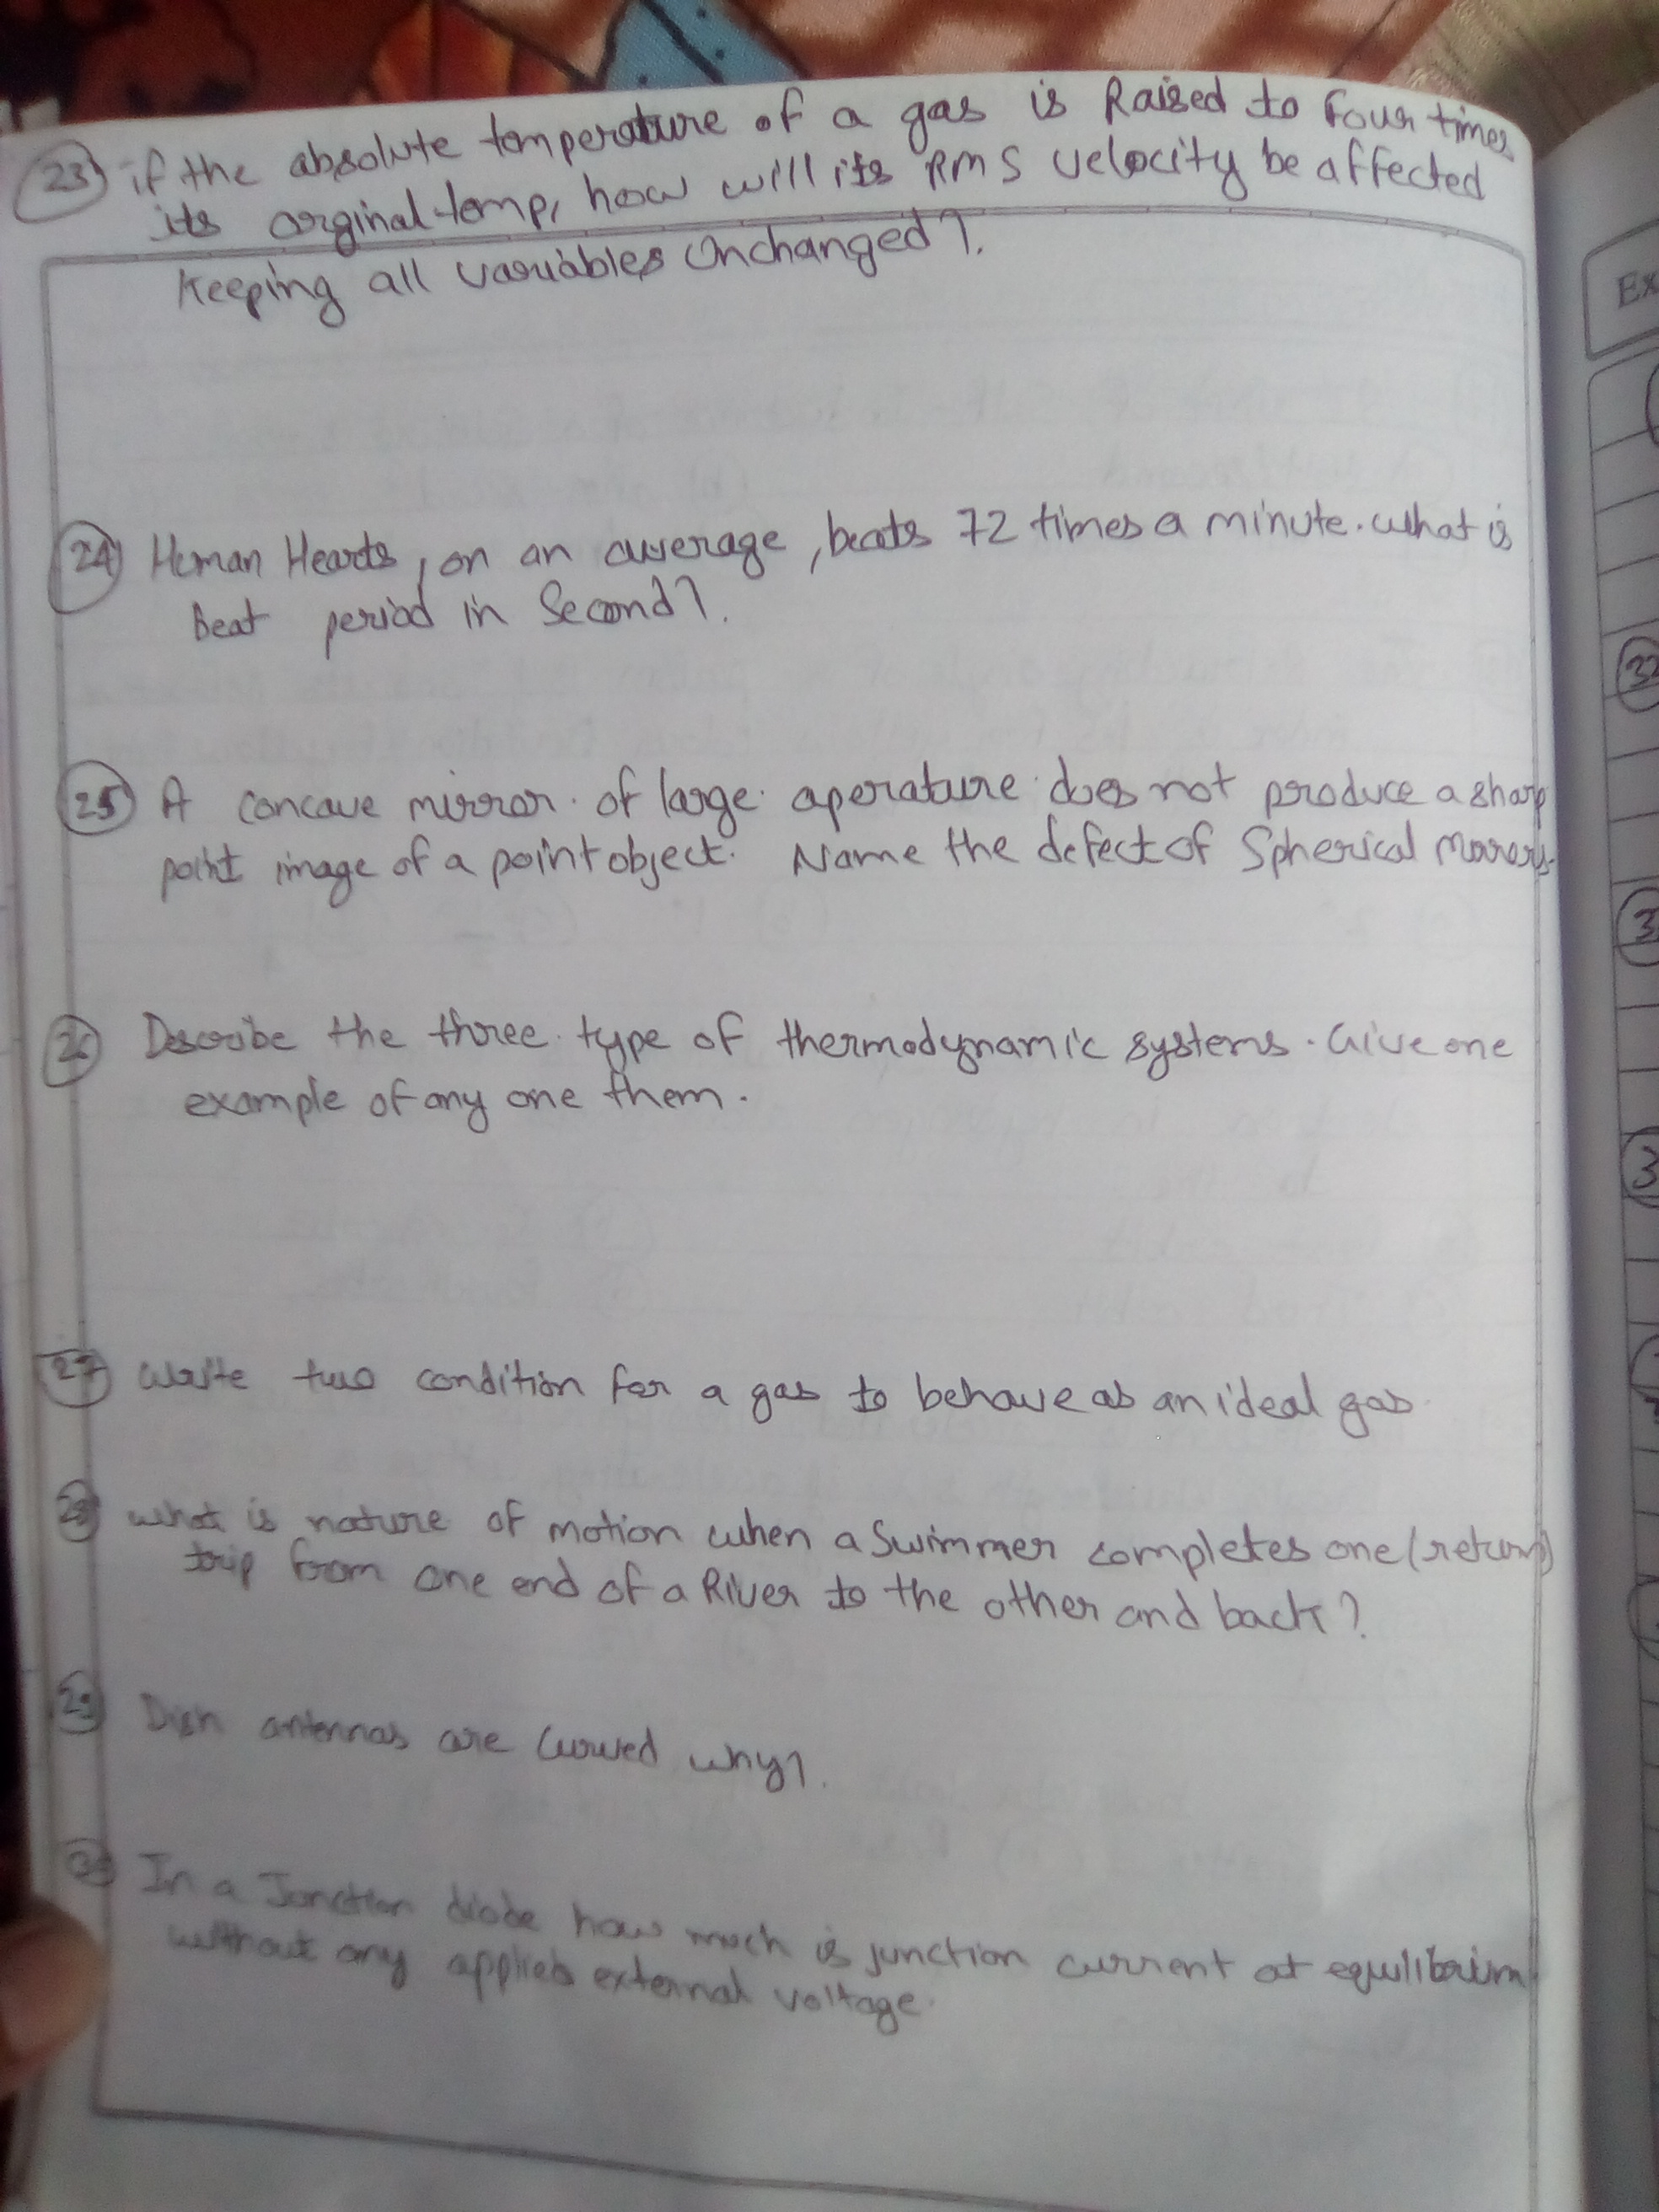 23 if the absolute temperature of a gas is Raised to four times
its orginal temp, how will its RMS velocity be affected
Keeping all variables Unchanged?.
24 Human Hearts, on an average, beats 72 times a minute. What is
beat period in Second?.
25 A concave mirror of large aperature does not produce a sharp
point image of a point object. Name the defect of Spherical Mirrors.
26 Describe the three type of thermodynamic systems. Give one
example of any one them.
27 Write two condition for a gas to behave as an ideal gas
28 What is nature of motion when a Swimmer completes one (return)
trip from one end of a River to the other and back?
29 Dish antennas are Curved why?.
30 In a Junction diode how much is junction current at equilibrium
without any applied external voltage.
Ex
32
3
3